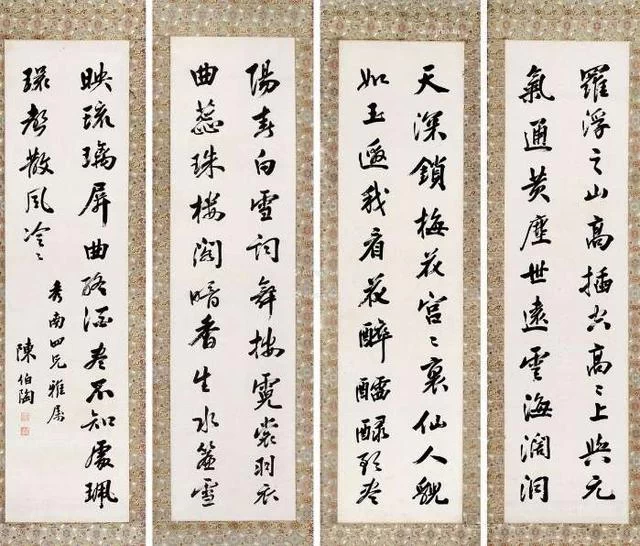 羅浮之山高插空高々上與元
氣通黃塵世遠雲海濶洞
天深鎖梅花宮々裏仙人貌
如玉邀我看花醉醽醁歌盡
陽春白雪詞舞按霓裳羽衣
曲蕊珠樓閣暗香生水簾雪
映琉璃屏曲終酒盡不知處珮
環聲散風冷々
秀南四兄雅屬
陳伯陶